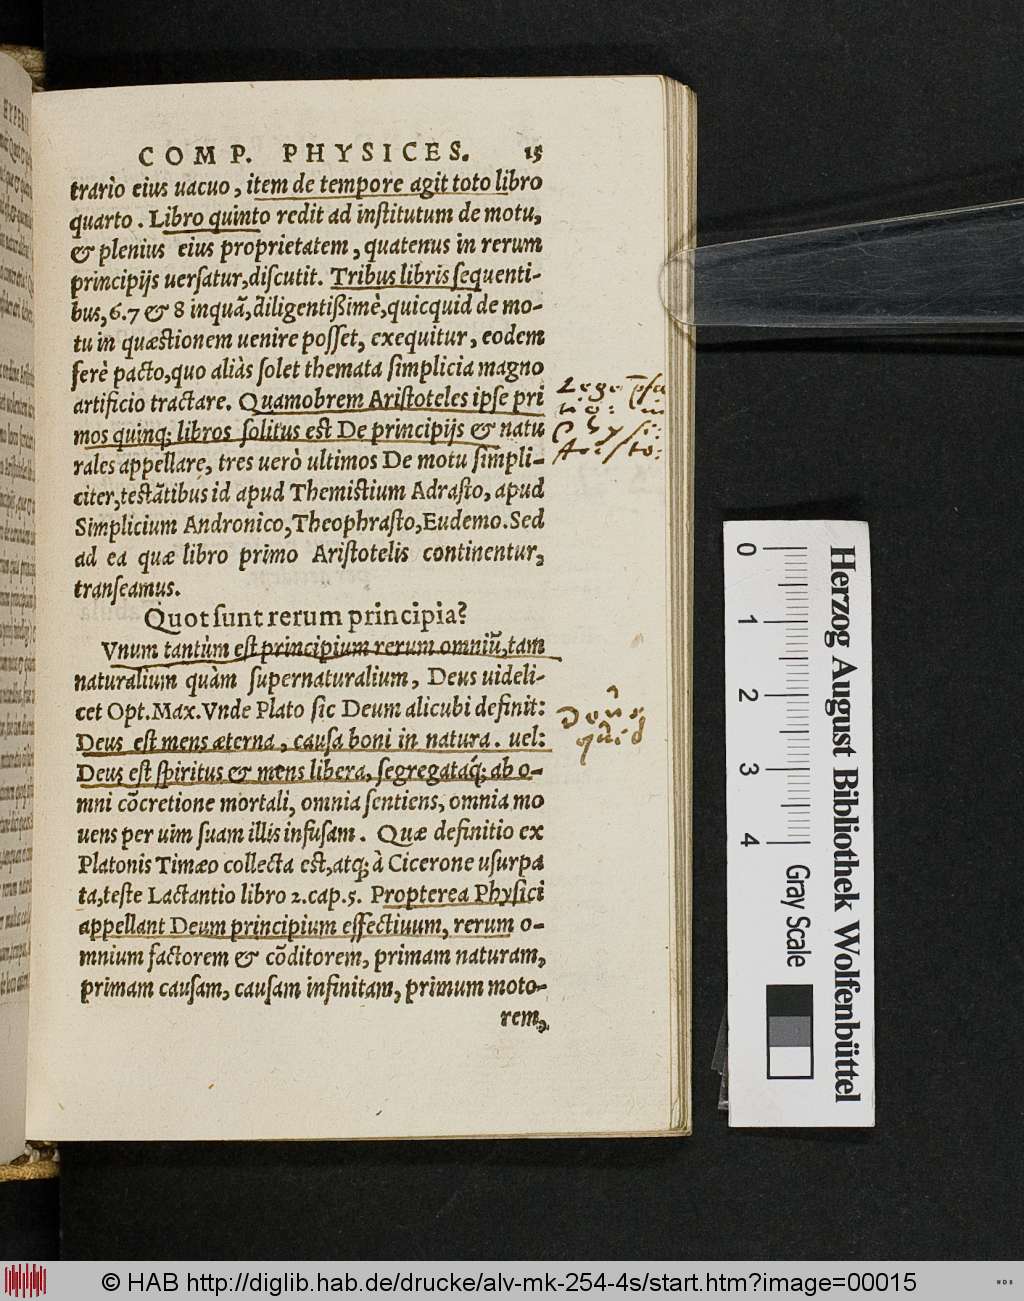 COMP. PHYSICES. 15
trario eius uacuo, item de tempore agit toto libro
quarto. Libro quinto redit ad inſtitutum de motu,
& plenius eius proprietatem, quatenus in rerum
principijs uerſatur, diſcutit. Tribus libris ſequenti-
bus, 6. 7 & 8 inquā, diligentiſsimè, quicquid de mo-
tu in quæſtionem uenire poſſet, exequitur, eodem
ferè pacto, quo aliàs ſolet themata ſimplicia magno
artificio tractare. Quamobrem Ariſtoteles ipſe pri
mos quinq; libros ſolitus est De principijs & natu
rales appellare, tres uerò ultimos De motu ſimpli-
citer, teſtātibus id apud Themiſtium Adraſto, apud
Simplicium Andronico, Theophraſto, Eudemo. Sed
ad ea quæ libro primo Ariſtotelis continentur,
tranſeamus.
Quot ſunt rerum principia?
Vnum tantùm eſt principium rerum omniū, tam
naturalium quàm ſupernaturalium, Deus uideli-
cet Opt. Max. Vnde Plato ſic Deum alicubi definit:
Deus eſt mens æterna, cauſa boni in natura. uel:
Deus eſt ſpiritus & mens libera, ſegregataq́; ab o-
mni cōcretione mortali, omnia ſentiens, omnia mo
uens per uim ſuam illis infuſam. Quæ definitio ex
Platonis Timæo collecta eſt, atq; à Cicerone uſurpa
ta, teſte Lactantio libro 2. cap. 5. Propterea Phyſici
appellant Deum principium effectiuum, rerum o-
mnium factorem & cōditorem, primam naturam,
primam cauſam, cauſam infinitam, primum moto-
rem,
Lege
Phyſi:
Ariſto:
Deus
quid
Herzog August Bibliothek Wolfenbüttel
0 1 2 3 4 Gray Scale
© HAB http://diglib.hab.de/drucke/alv-mk-254-4s/start.htm?image=00015